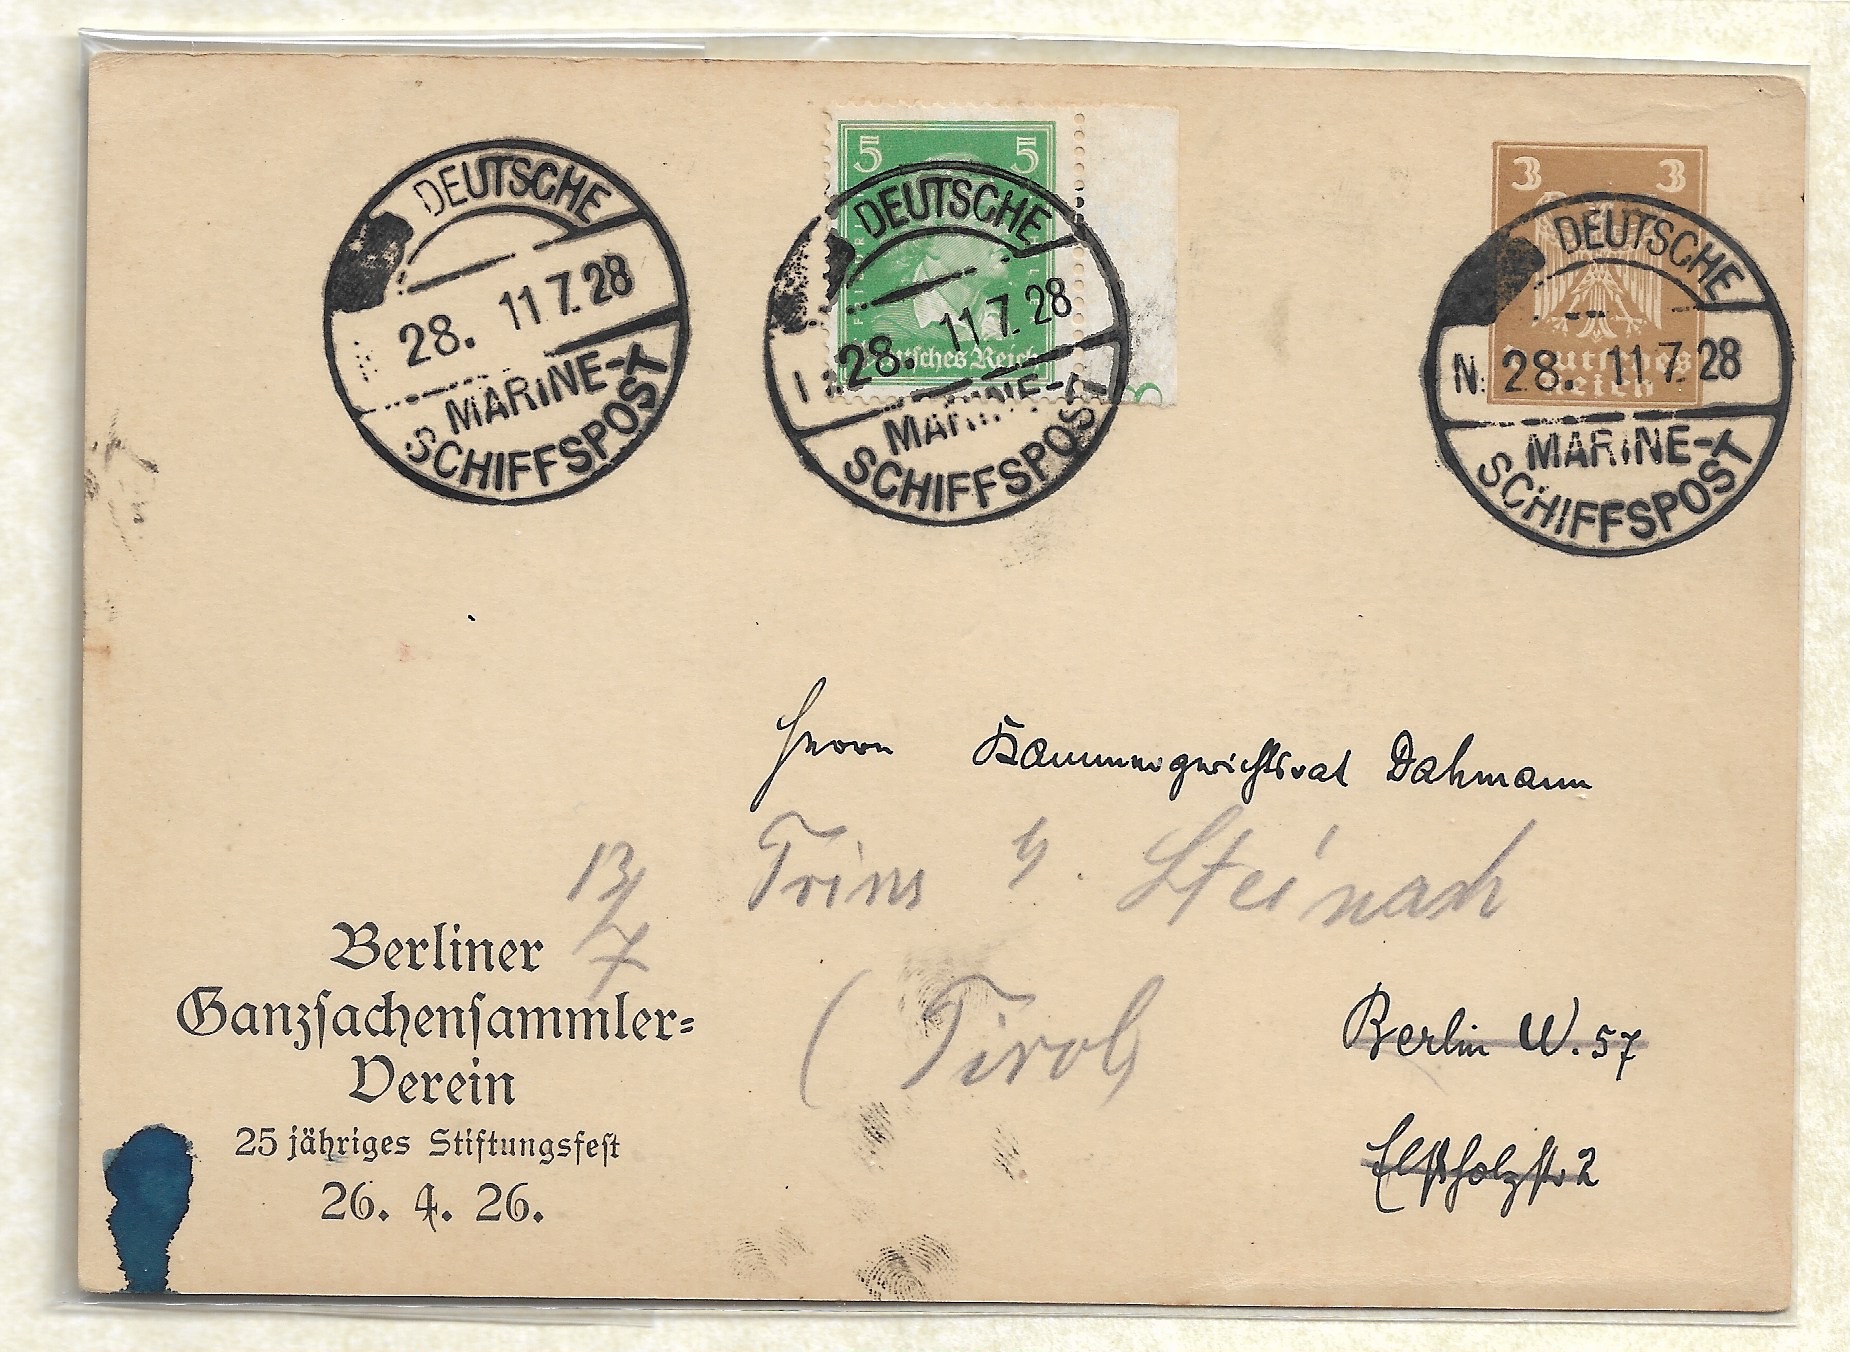 DEUTSCHE
28. 11 7. 28
MARINE-
SCHIFFSPOST
5 5
Deutsches Reich
DEUTSCHE
28. 11 7. 28
MARINE-
SCHIFFSPOST
3 3
Deutsches
Reich
DEUTSCHE
N: 28. 11 7. 28
MARINE-
SCHIFFSPOST
Herrn Kammergerichtsrat Dahmann
13/7 Trins b. Steinach
(Tirol)
Berlin W. 57
Elßholzstr 2
Berliner
Ganzſachenſammler-
Verein
25 jähriges Stiftungsfeſt
26. 4. 26.